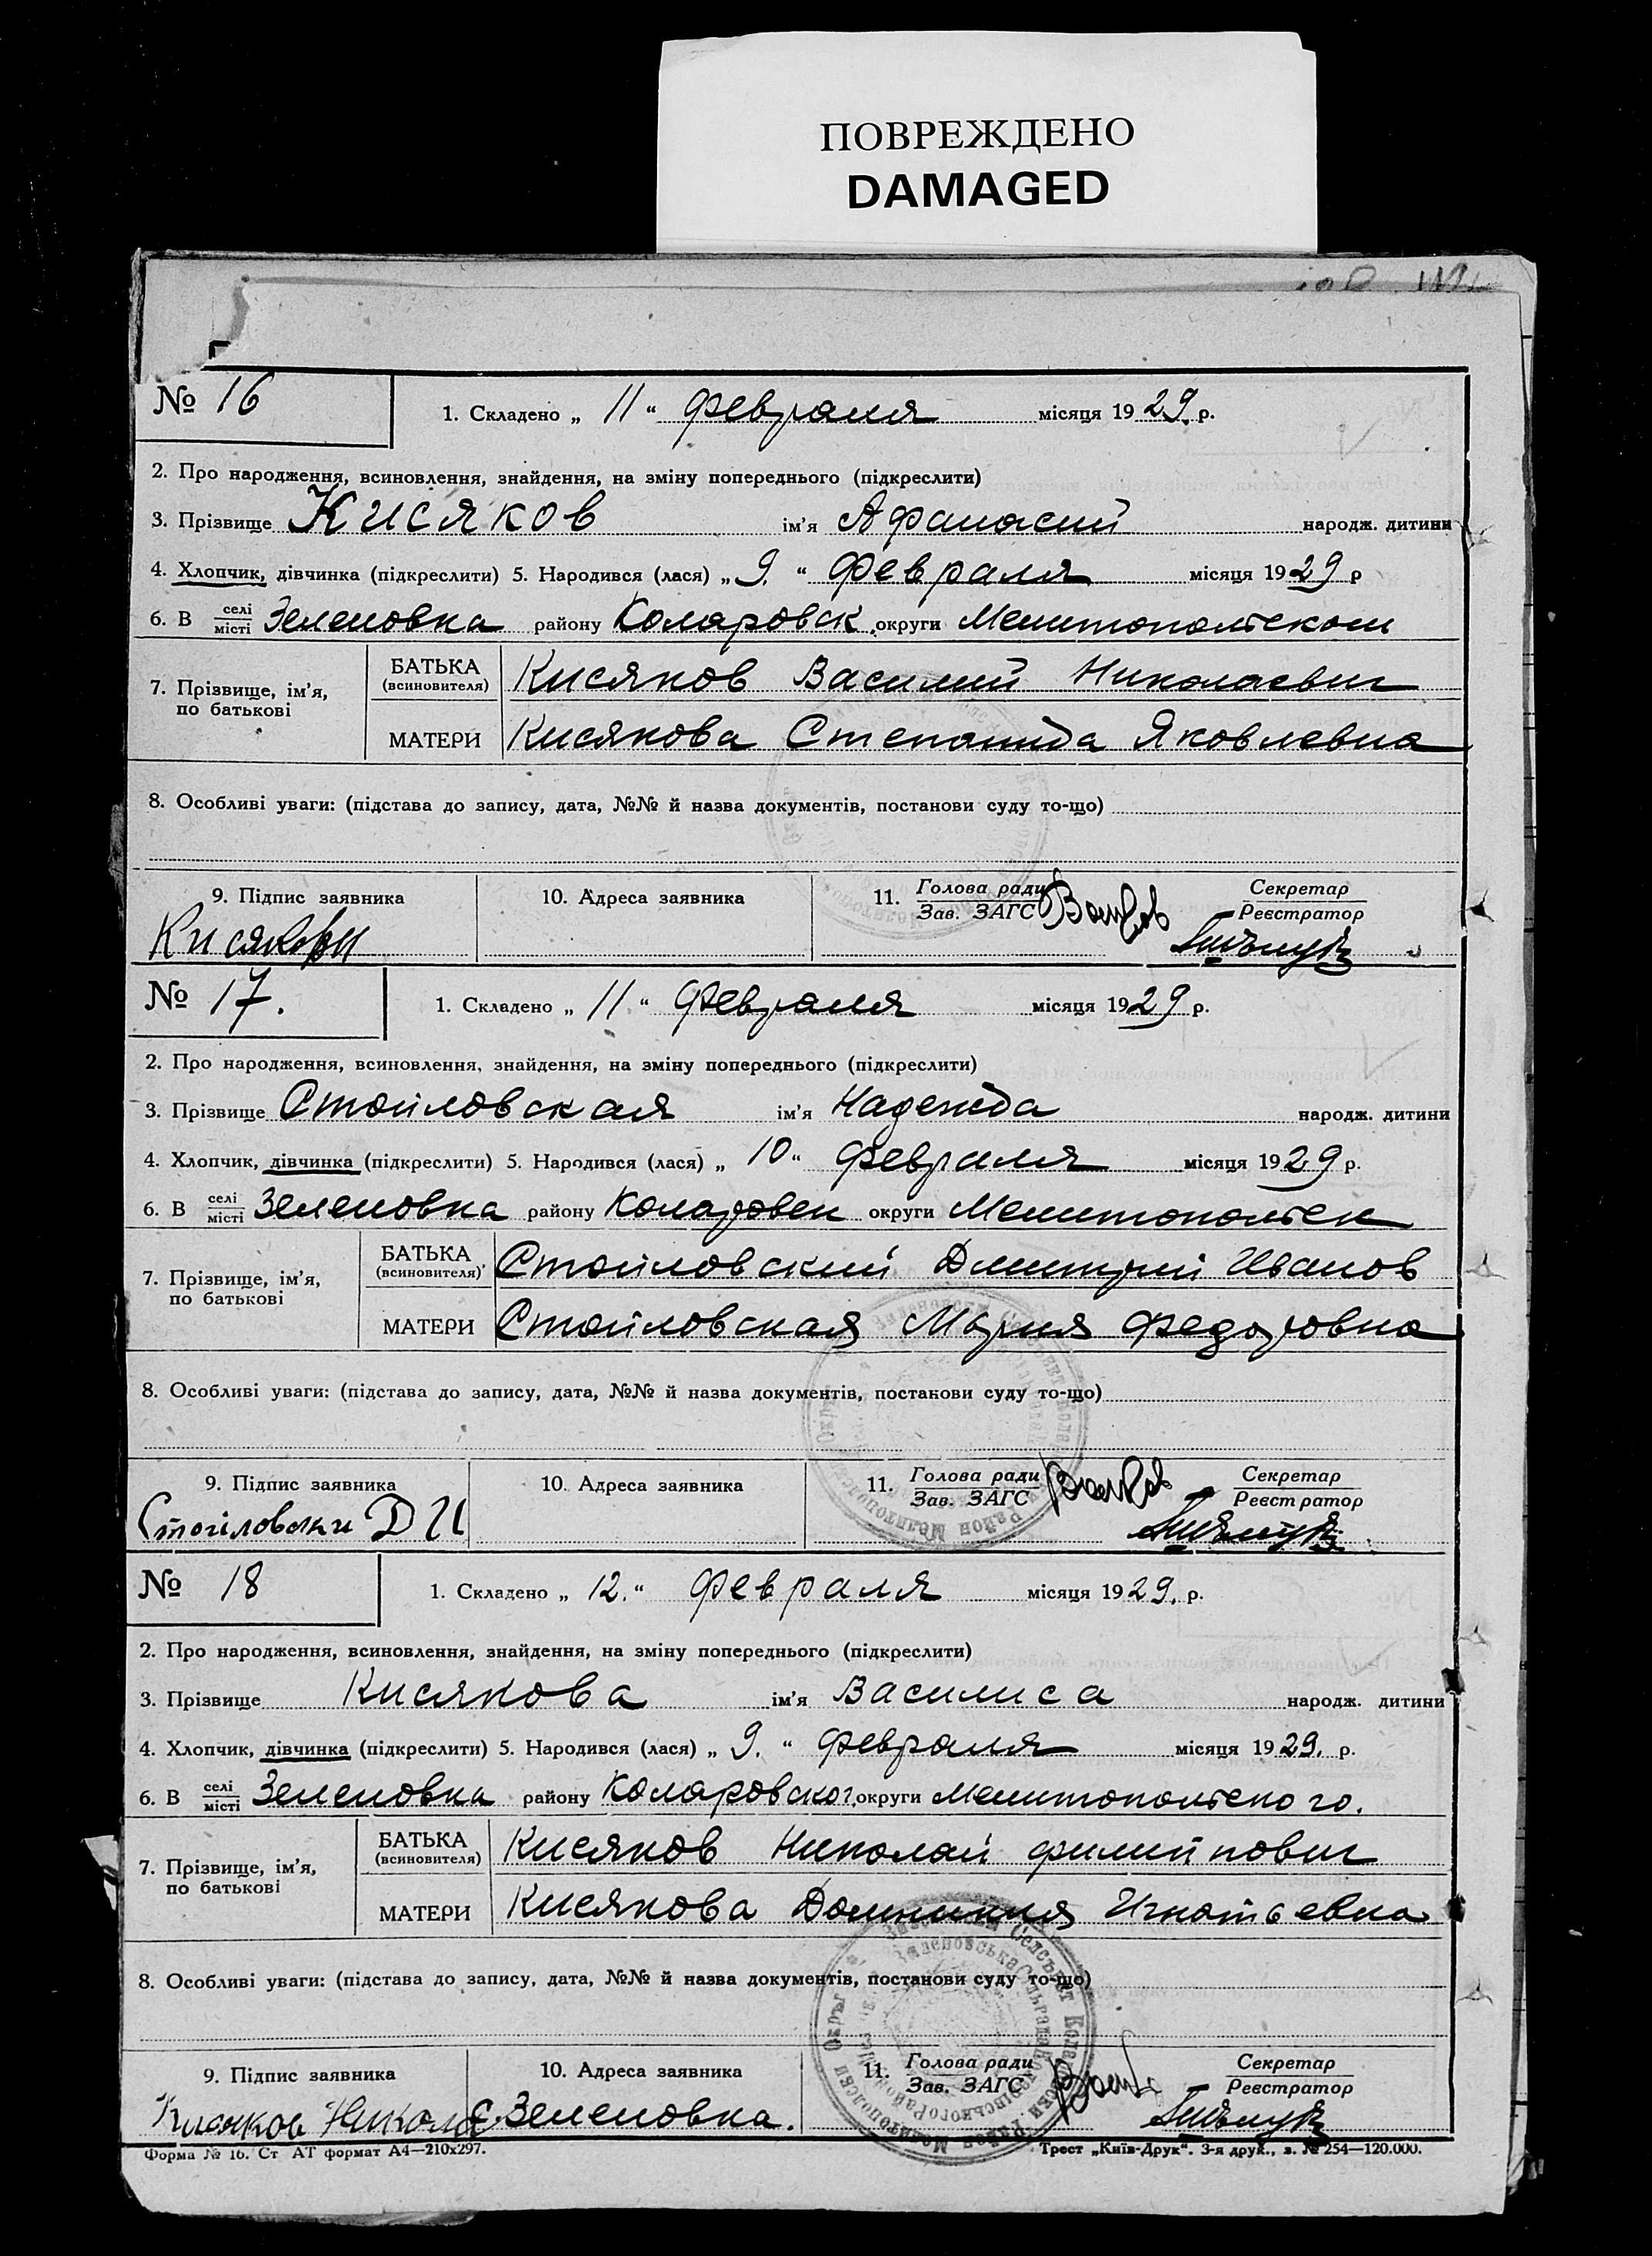 ПОВРЕЖДЕНО
DAMAGED
№ 16
1. Складено „ 11 “ февраля місяця 1929. р.
2. Про народження, всиновлення, знайдення, на зміну попереднього (підкреслити)
3. Прізвище Кисяков ім'я Афанасий народж. дитини
4. Хлопчик, дівчинка (підкреслити) 5. Народився (лася) „ 9. “ февраля місяця 1929 р
6. В селі/місті Зеленовка району Коларовск. округи Мелитопольском
7. Прізвище, ім'я, по батькові
БАТЬКА (всиновителя) Кисяков Василий Николаевич
МАТЕРИ Кисякова Степанида Яковлевна
8. Особливі уваги: (підстава до запису, дата, №№ й назва документів, постанови суду то-що)
9. Підпис заявника 10. Адреса заявника 11. Голова ради/Зав. ЗАГС Секретар/Реєстратор
№ 17.
1. Складено „ 11 “ февраля місяця 1929 р.
2. Про народження, всиновлення, знайдення, на зміну попереднього (підкреслити)
3. Прізвище Стоиловская ім'я Надежда народж. дитини
4. Хлопчик, дівчинка (підкреслити) 5. Народився (лася) „ 10 “ февраля місяця 1929 р.
6. В селі/місті Зеленовка району Коларовск округи Мелитопольск
7. Прізвище, ім'я, по батькові
БАТЬКА (всиновителя) Стоиловский Дмитрий Иванов
МАТЕРИ Стоиловская Мария Федоровна
8. Особливі уваги: (підстава до запису, дата, №№ й назва документів, постанови суду то-що)
9. Підпис заявника 10. Адреса заявника 11. Голова ради/Зав. ЗАГС Секретар/Реєстратор
Стоіловски Д И
№ 18
1. Складено „ 12. “ февраля місяця 1929. р.
2. Про народження, всиновлення, знайдення, на зміну попереднього (підкреслити)
3. Прізвище Кисякова ім'я Василиса народж. дитини
4. Хлопчик, дівчинка (підкреслити) 5. Народився (лася) „ 9. “ февраля місяця 1929. р.
6. В селі/місті Зеленовка району Коларовског. округи Мелитопольского.
7. Прізвище, ім'я, по батькові
БАТЬКА (всиновителя) Кисяков Николай Филиппович
МАТЕРИ Кисякова Домникия Игнатьевна
8. Особливі уваги: (підстава до запису, дата, №№ й назва документів, постанови суду то-що)
9. Підпис заявника 10. Адреса заявника 11. Голова ради/Зав. ЗАГС Секретар/Реєстратор
Кисяков Никола С. Зеленовка.
Форма № 16. Ст АТ формат А4—210х297. Трест „Київ-Друк“. 3-я друк., з. № 254—120.000.